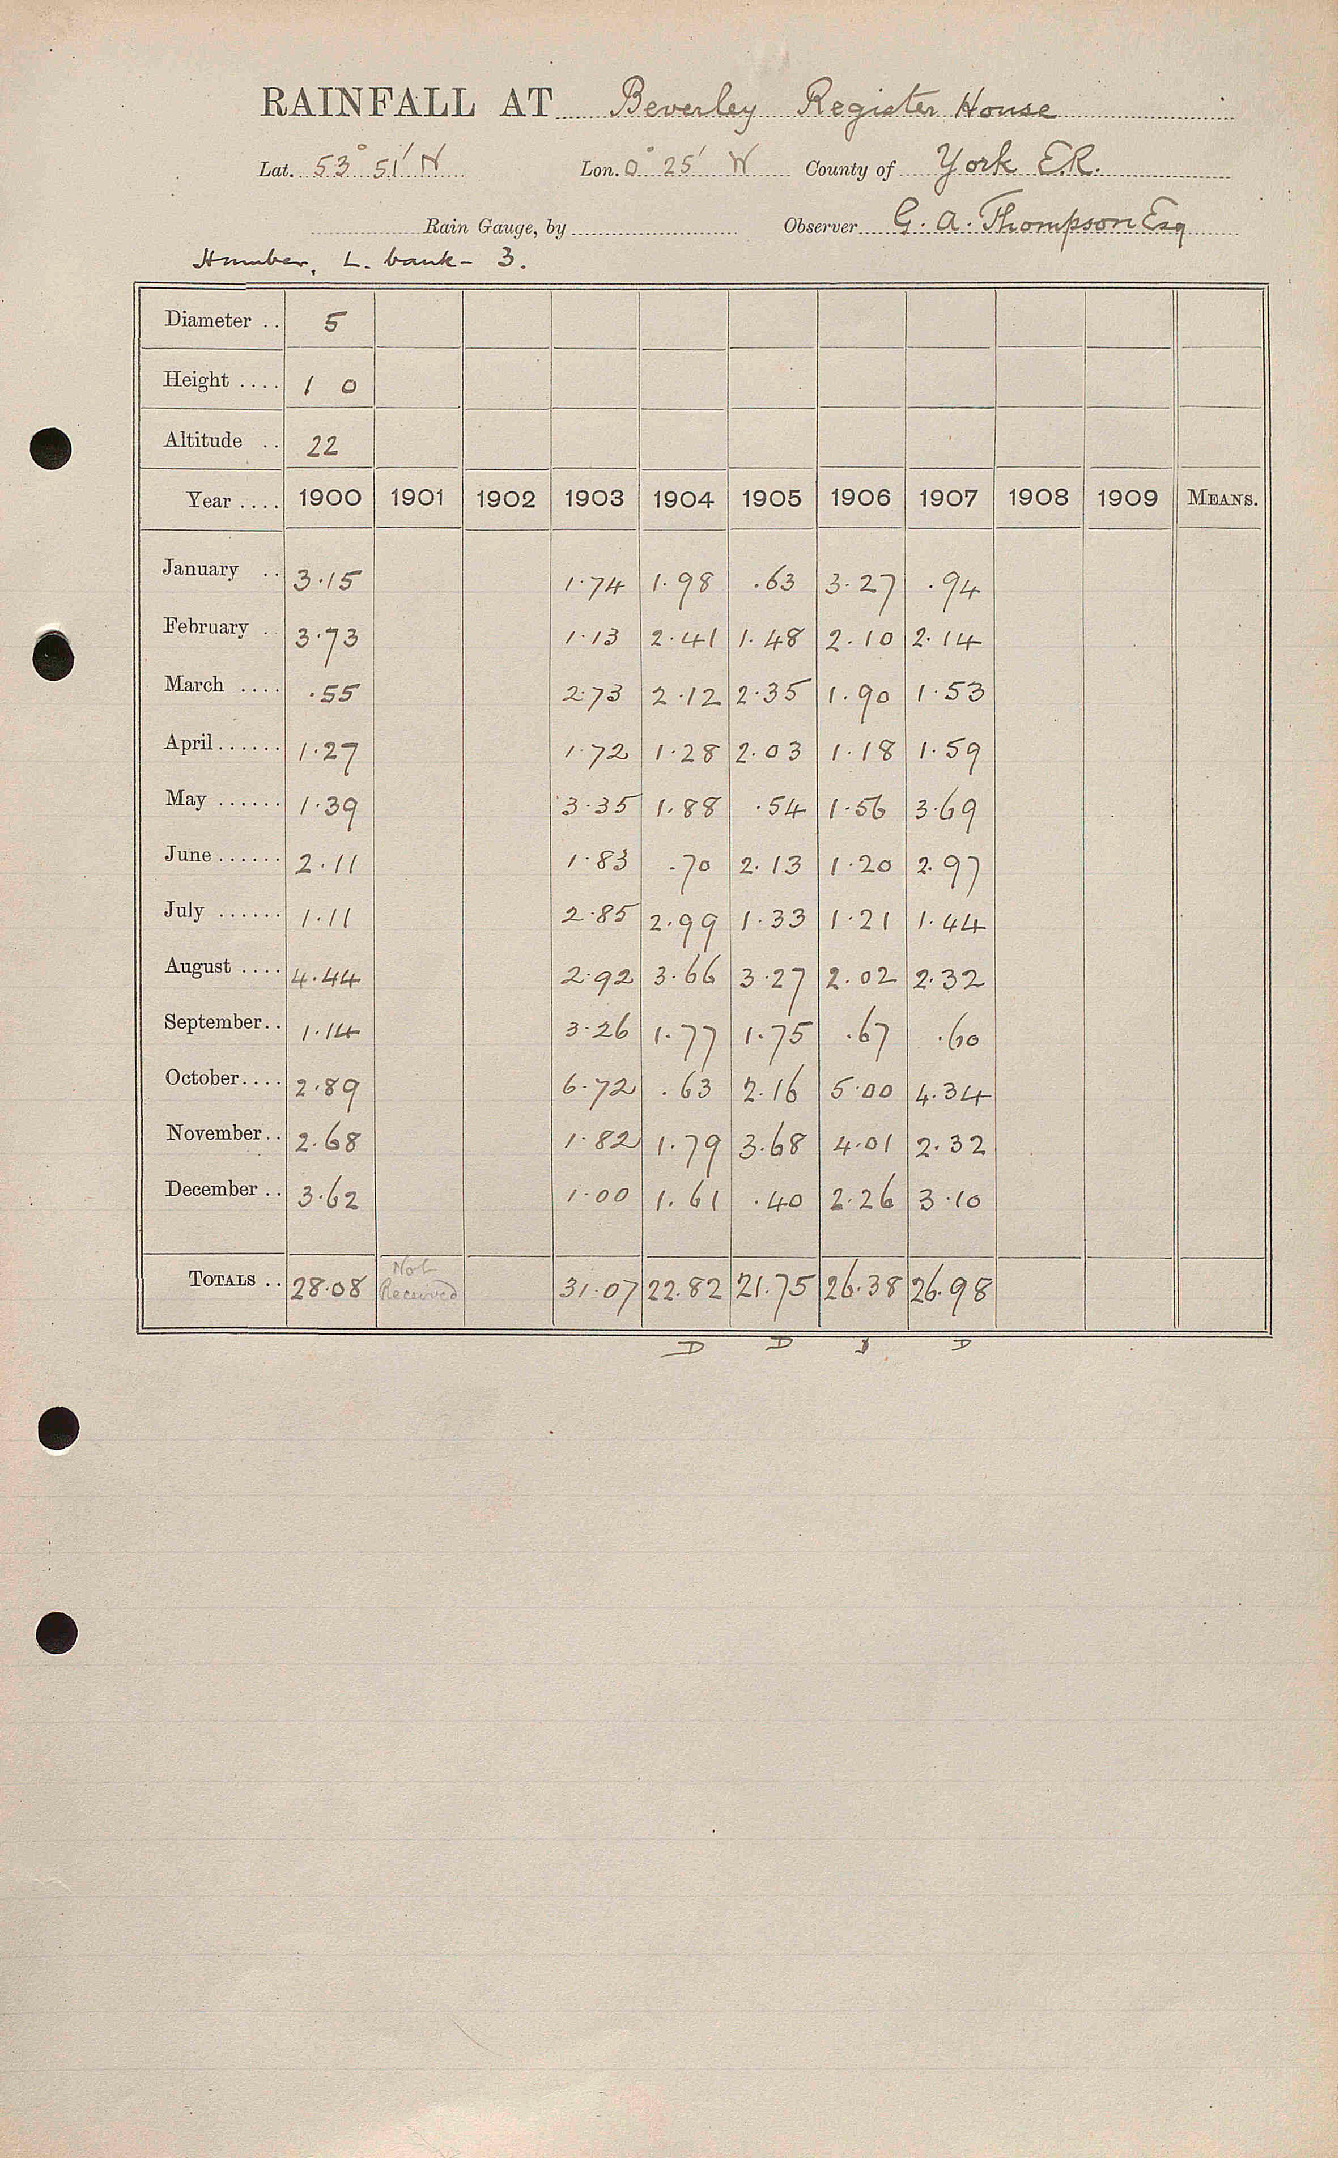 RAINFALL AT Beverley Register House
Lat. 53° 51' N Lon. 0° 25' W County of York E.R.
Rain Gauge, by Observer G. A. Thompson Esq
Humber, L. bank - 3.
Diameter .. 5
Height .... 1 0
Altitude .. 22
Year .... 1900 1901 1902 1903 1904 1905 1906 1907 1908 1909 MEANS.
January .. 3.15 1.74 1.98 .63 3.27 .94
February .. 3.73 1.13 2.41 1.48 2.10 2.14
March .... .55 2.73 2.12 2.35 1.90 1.53
April...... 1.27 1.72 1.28 2.03 1.18 1.59
May ...... 1.39 3.35 1.88 .54 1.56 3.69
June...... 2.11 1.83 .70 2.13 1.20 2.97
July ...... 1.11 2.85 2.99 1.33 1.21 1.44
August .... 4.44 2.92 3.66 3.27 2.02 2.32
September.. 1.14 3.26 1.77 1.75 .67 .60
October.... 2.89 6.72 .63 2.16 5.00 4.34
November.. 2.68 1.82 1.79 3.68 4.01 2.32
December .. 3.62 1.00 1.61 .40 2.26 3.10
TOTALS .. 28.08 Not Received 31.07 22.82 21.75 26.38 26.98
D D D